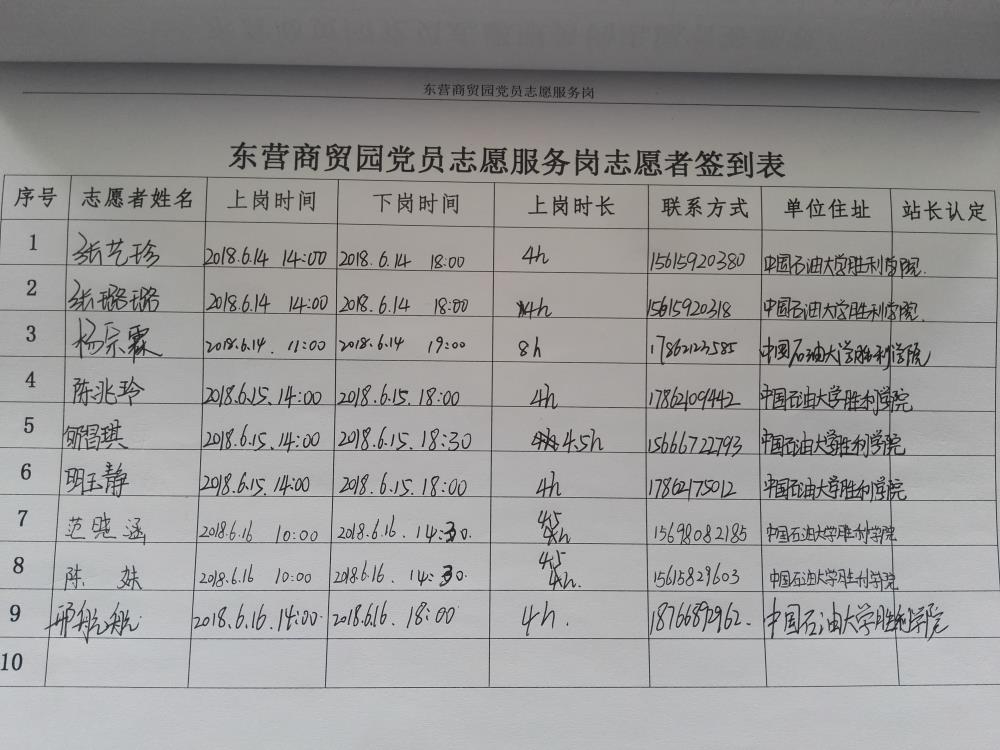 东营商贸园党员志愿服务岗
东营商贸园党员志愿服务岗志愿者签到表
序号 志愿者姓名 上岗时间 下岗时间 上岗时长 联系方式 单位住址 站长认定
1 张艺珍 2018.6.14 14:00 2018.6.14 18:00 4h 15615920380 中国石油大学胜利学院.
2 张璐璐 2018.6.14 14:00 2018.6.14 18:00 4h 15615920318 中国石油大学胜利学院.
3 杨宗霖 2018.6.14. 11:00 2018.6.14 19:00 8h 17862122585 中国石油大学胜利学院
4 陈兆玲 2018.6.15. 14:00 2018.6.15. 18:00 4h 17862109442 中国石油大学胜利学院
5 2018.6.15. 14:00 2018.6.15. 18:30 4.5h 15666722793 中国石油大学胜利学院
6 明玉静 2018.6.15. 14:00 2018.6.15. 18:00 4h 17862175012 中国石油大学胜利学院
7 范晓涵 2018.6.16 10:00 2018.6.16. 14:30. 4.5h 15698082185 中国石油大学胜利学院
8 陈姝 2018.6.16 10:00 2018.6.16. 14:30. 4.5h. 15615829603 中国石油大学胜利学院
9 邢航航 2018.6.16. 14:00. 2018.6.16. 18:00 4h. 18766892962. 中国石油大学胜利学院
10